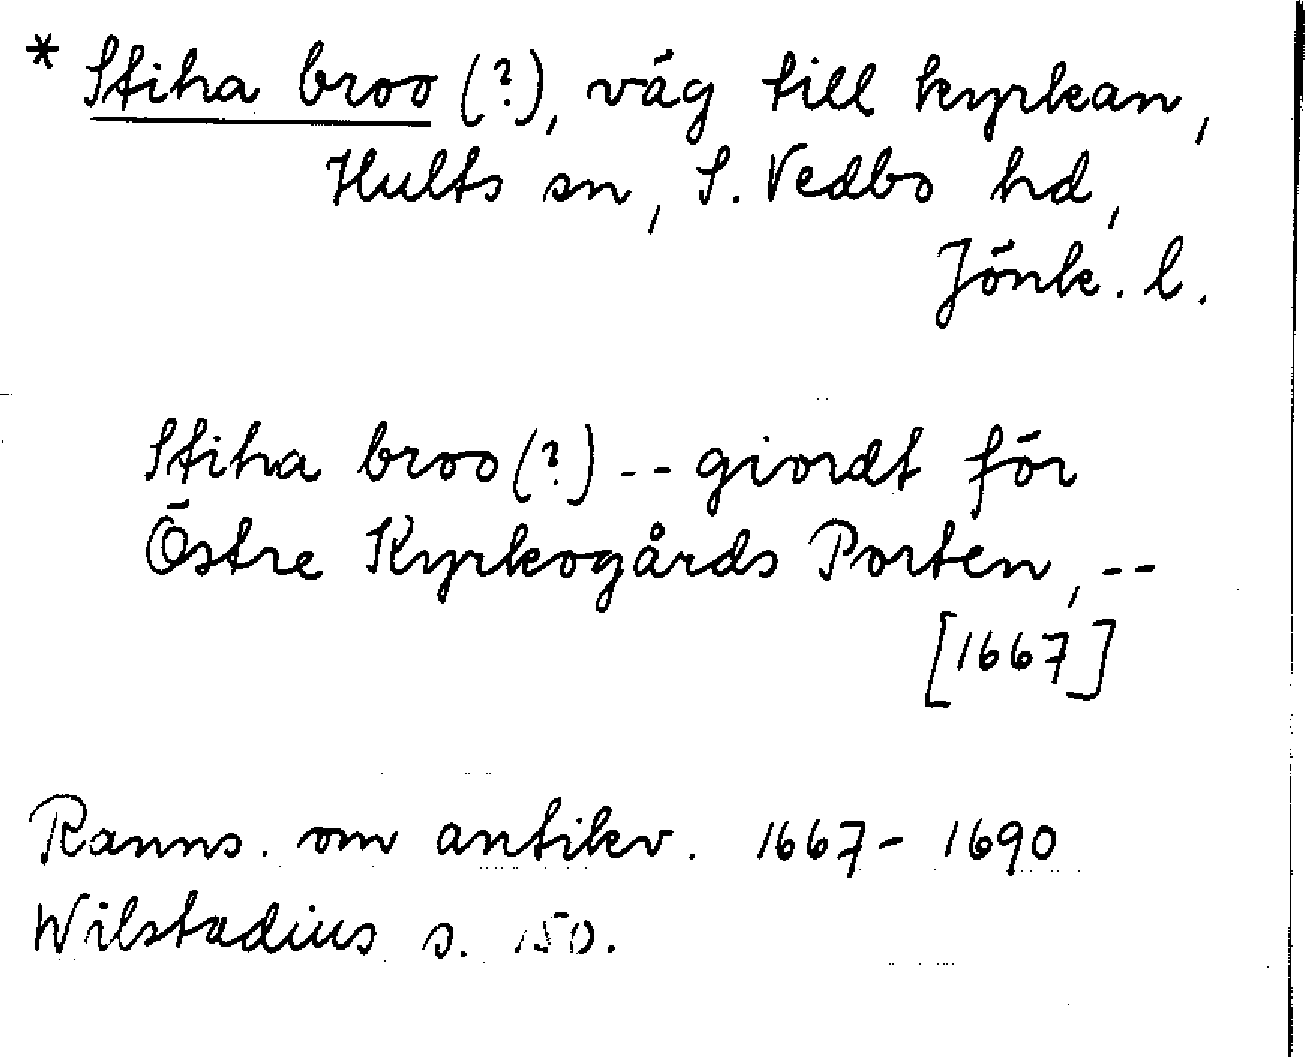 * Stiha broo (?), väg till kyrkan,
Hults sn, S. Vedbo hd,
Jönk. l.
Stiha broo (?) -- giordt för
Östre Kyrkogårds Porten, --
[1667]
Ranns. om antikv. 1667- 1690
Wilstadius s. 150.